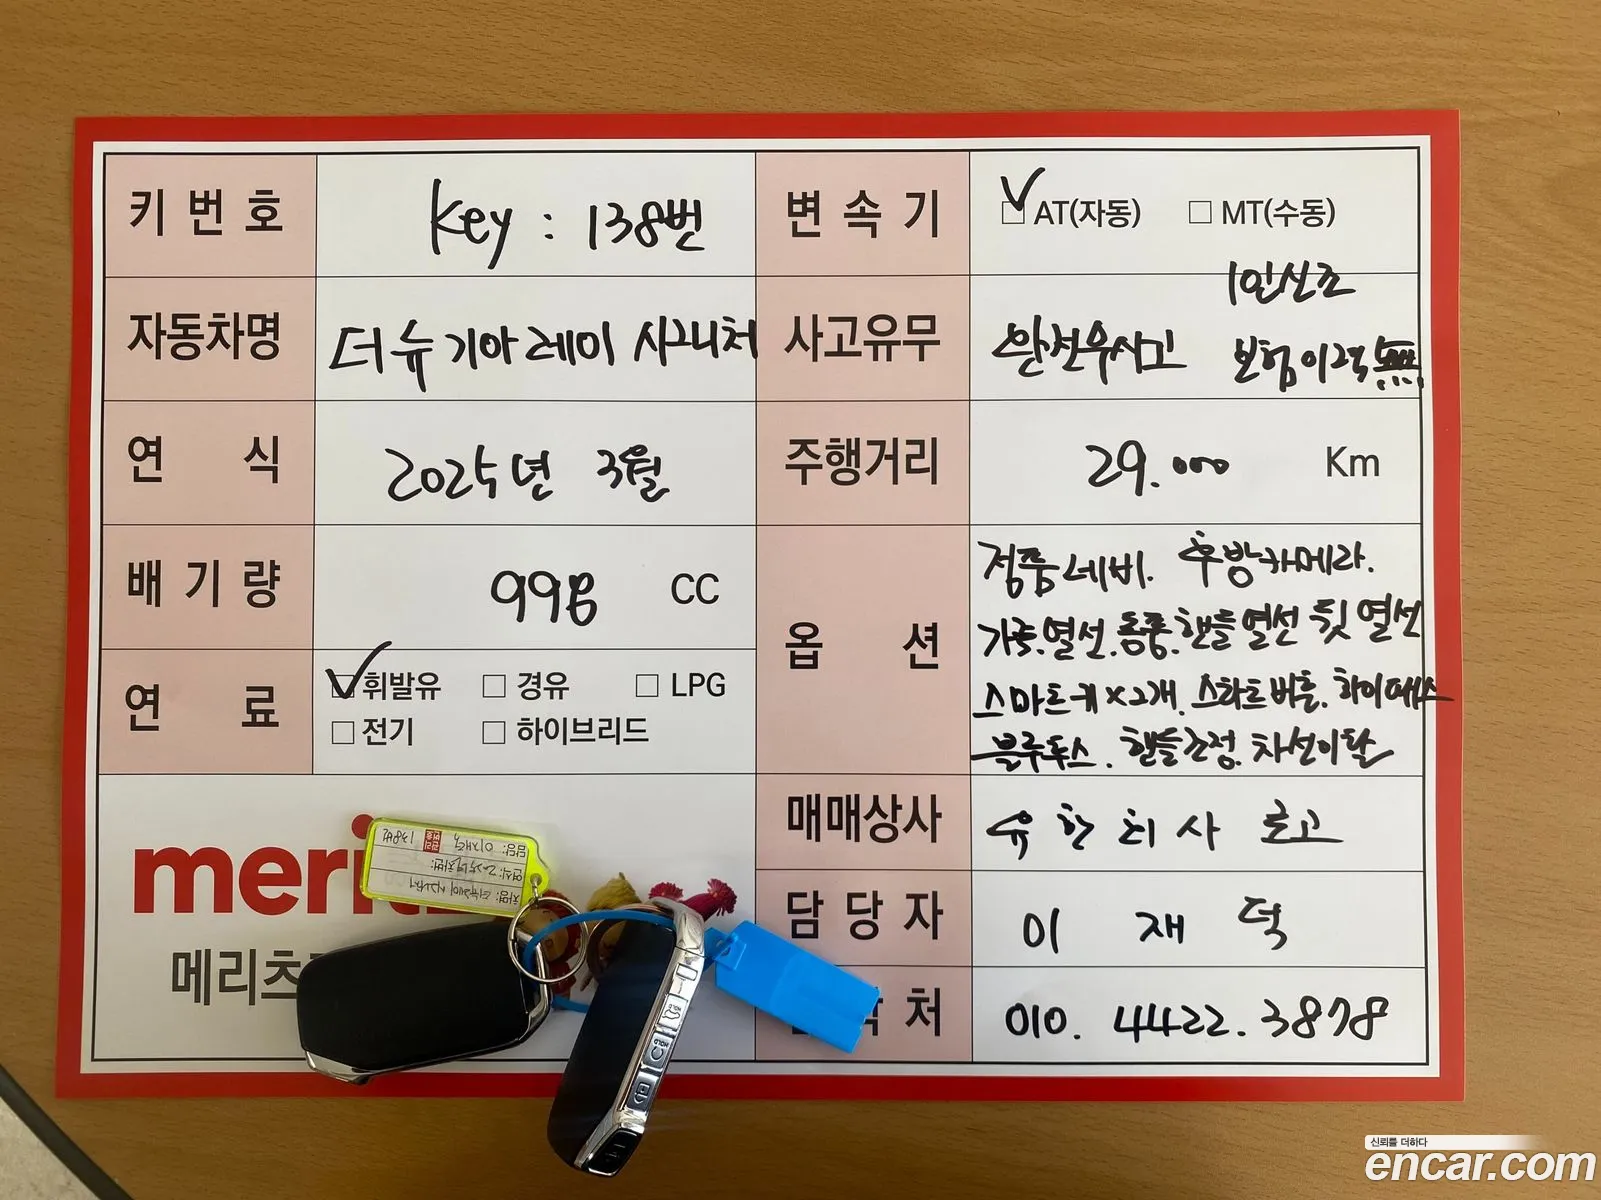 키 번 호
Key : 138번
변 속 기
AT(자동) MT(수동)
자동차명
더 뉴 기아 레이 시그니처
사고유무
1인신조
완전무사고 보험이력 無
연 식
2025년 3월
주행거리
29.000 Km
배 기 량
998 CC
옵 션
정품네비. 후방카메라.
가죽.열선.통풍.핸들열선 뒷열선
스마트키×2개. 스타트버튼. 하이패스
블루투스. 핸들조정. 차선이탈
연 료
휘발유 경유 LPG
전기 하이브리드
매매상사
유한회사 로고
담 당 자
이 재 덕
처
010. 4422. 3878
meri
메리츠
차명: 더뉴레이 시그니처
연식: 차번:
담당: 이재덕 138번
신뢰를 더하다
encar.com